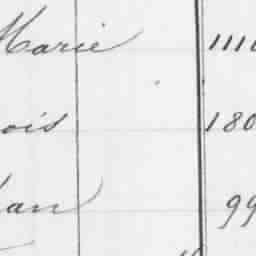 Marie 111
ois 180
an 99